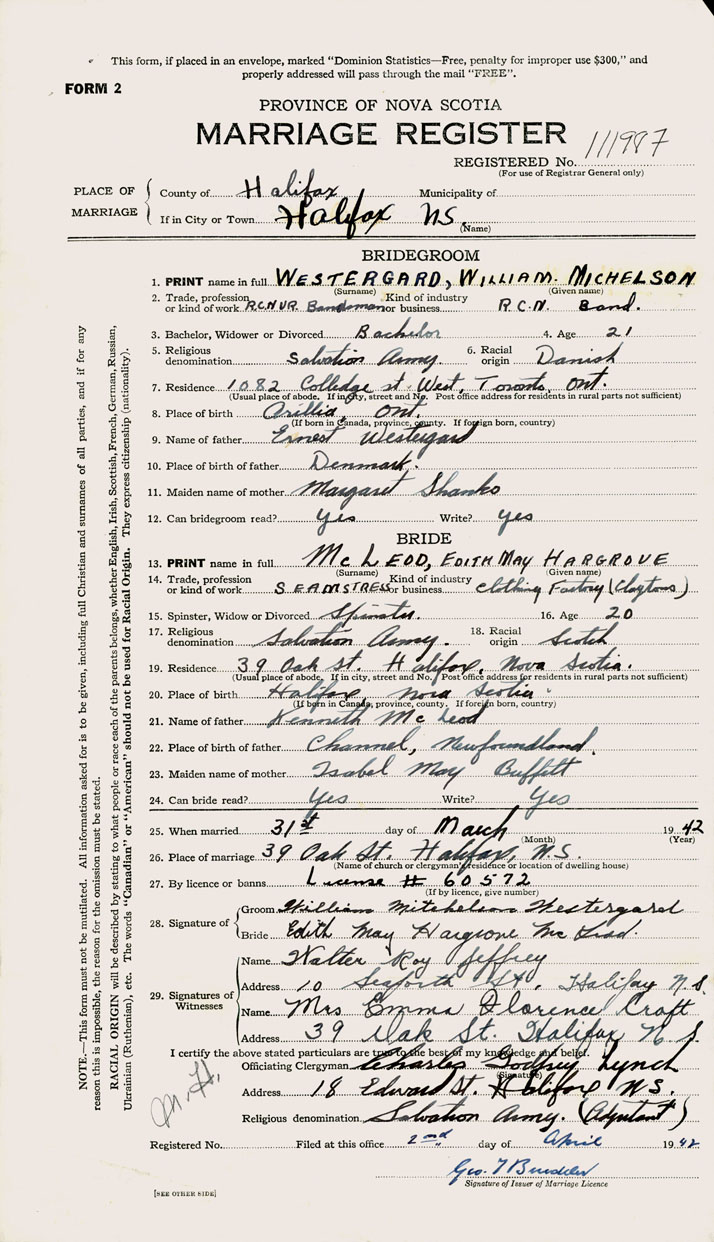 This form, if placed in an envelope, marked "Dominion Statistics—Free, penalty for improper use $300," and
properly addressed will pass through the mail "FREE".
FORM 2
PROVINCE OF NOVA SCOTIA
MARRIAGE REGISTER
REGISTERED No. 111987
(For use of Registrar General only)
PLACE OF MARRIAGE
County of Halifax Municipality of
If in City or Town Halifax N.S.
(Name)
BRIDEGROOM
1. PRINT name in full WESTERGARD, WILLIAM. MICHELSON
(Surname) (Given name)
2. Trade, profession or kind of work R.C.N.V.R. Bandsman Kind of industry or business R.C.N. Band.
3. Bachelor, Widower or Divorced Bachelor 4. Age 21
5. Religious denomination Salvation Army. 6. Racial origin Danish
7. Residence 1082 Colledge st. West, Toronto, Ont.
(Usual place of abode. If in city, street and No. Post office address for residents in rural parts not sufficient)
8. Place of birth Orillia, Ont.
(If born in Canada, province, county. If foreign born, country)
9. Name of father Ernest Westergard
10. Place of birth of father Denmark.
11. Maiden name of mother Margaret Shanko
12. Can bridegroom read? yes Write? yes
BRIDE
13. PRINT name in full McLEOD, EDITH MAY HARGROVE
(Surname) (Given name)
14. Trade, profession or kind of work SEAMSTRESS Kind of industry or business Clothing Factory (Claytons)
15. Spinster, Widow or Divorced Spinster 16. Age 20
17. Religious denomination Salvation Army. 18. Racial origin Scotch
19. Residence 39 Oak St. Halifax, Nova Scotia.
(Usual place of abode. If in city, street and No. Post office address for residents in rural parts not sufficient)
20. Place of birth Halifax, Nova Scotia
(If born in Canada, province, county. If foreign born, country)
21. Name of father Kenneth McLeod
22. Place of birth of father Channel, Newfoundland.
23. Maiden name of mother Isabel May Buffitt
24. Can bride read? Yes Write? Yes
25. When married 31st day of March 1942
(Month) (Year)
26. Place of marriage 39 Oak St. Halifax, N.S.
(Name of church or clergyman's residence or location of dwelling house)
27. By licence or banns License # 60572
(If by licence, give number)
28. Signature of
Groom William Mitchelson Westergard
Bride Edith May Hargrove McLeod.
29. Signatures of Witnesses
Name Walter Roy Jeffrey
Address 10 Seaforth St, Halifax N.S.
Name Mrs Emma Florence Croft
Address 39 Oak St. Halifax N.S.
I certify the above stated particulars are true to the best of my knowledge and belief.
Officiating Clergyman Charles Godfrey Lynch
(Signature)
Address 18 Edward St. Halifax N.S.
Religious denomination Salvation Army. (Adjutant)
Registered No. Filed at this office 2nd day of April 1942
Signature of Issuer of Marriage Licence
[SEE OTHER SIDE]
NOTE.—This form must not be mutilated. All information asked for is to be given, including full Christian and surnames of all parties, and if for any
reason this is impossible, the reason for the omission must be stated.
RACIAL ORIGIN will be described by stating to what people or race each of the parents belongs, whether English, Irish, Scottish, French, German, Russian,
Ukrainian (Ruthenian), etc. The words "Canadian" or "American" should not be used for Racial Origin. They express citizenship (nationality).